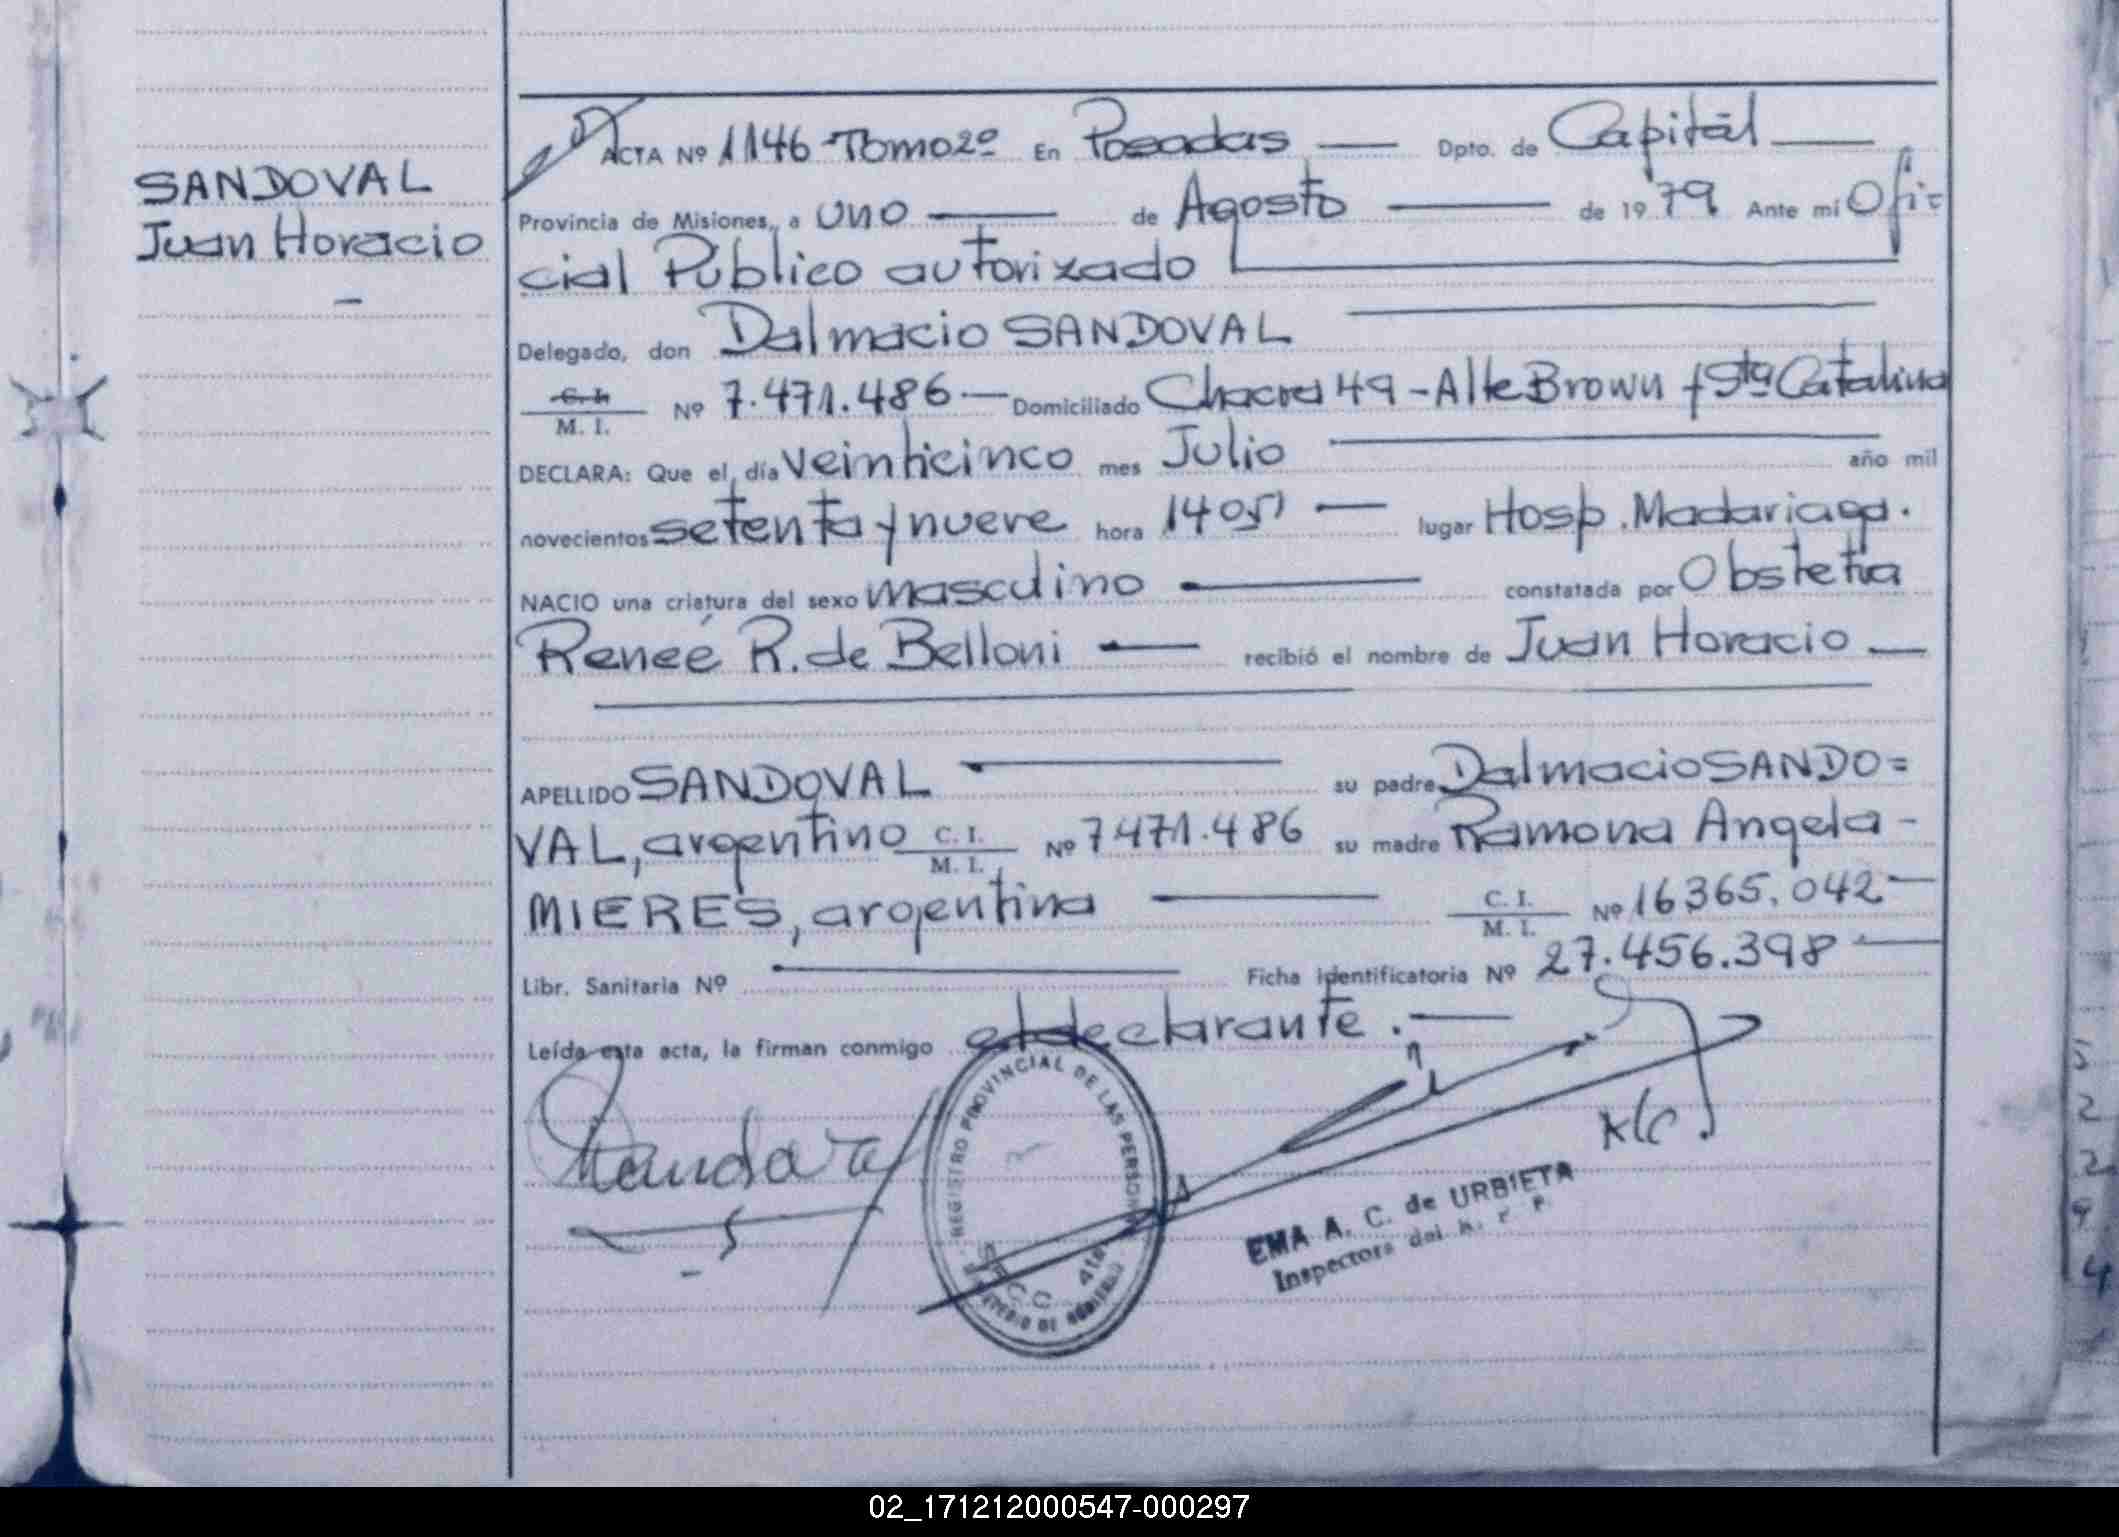 SANDOVAL
Juan Horacio
ACTA Nº 1146 Tomo 2º En Posadas Dpto. de Capital
Provincia de Misiones, a uno de Agosto de 1979 Ante mí Ofi=
cial Público autorizado
Delegado, don Dalmacio SANDOVAL
C. I. M. I. Nº 7.471.486 Domiciliado Chacra 49 - Alte Brown y Sta Catalina
DECLARA: Que el día veinticinco mes Julio año mil
novecientos setenta y nueve hora 1405 lugar Hosp. Madariaga.
NACIO una criatura del sexo masculino constatada por Obstetra
Reneé R. de Belloni recibió el nombre de Juan Horacio
APELLIDO SANDOVAL su padre Dalmacio SANDO=
VAL, argentino C. I. M. I. Nº 7471.486 su madre Ramona Angela -
MIERES, argentina C. I. M. I. Nº 16365.042
Libr. Sanitaria Nº Ficha identificatoria Nº 27.456.398
Leída esta acta, la firman conmigo el declarante.
REGISTRO PROVINCIAL DE LAS PERSONAS
EMA A. C. de URBIETA
Inspectora del R. P. P.
02_171212000547-000297